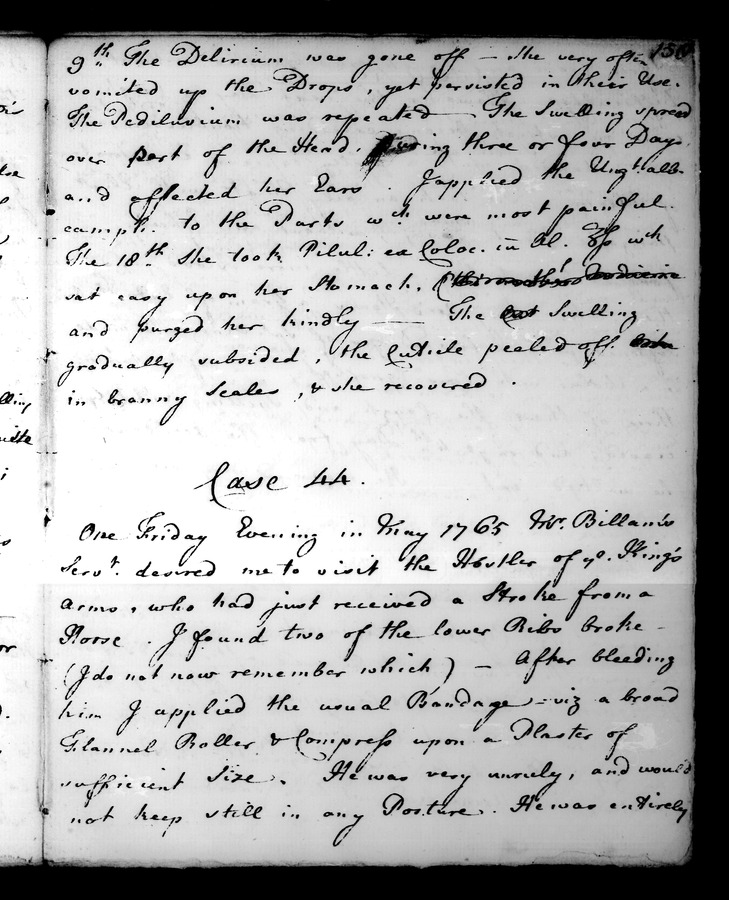 150
9th. The Delirium was gone off — she very often
vomited up the Drops, yet persisted in their Use.
The Pediluvium was repeated — The Swelling spread
over part of the Head, during three or four Days,
and affected her Ears. I applied the Ungt: alb.
camph: to the Parts wch were most painful.
The 18th She took Pilul: ex Coloc. wch
sat easy upon her Stomach,
and purged her kindly — The Swelling
gradually subsided, the Cuticle pealed off
in branny Scales, & she recovered.
Case 44.
One Friday Evening in May 1765 Mr. Billam's
Servt. desired me to visit the Hostler of ye. King's
Arms, who had just received a Stroke from a
Horse. I found two of the lower Ribs broke —
(I do not now remember which) — After bleeding
him I applied the usual Bandage — viz a broad
Flannel Roller & Compress upon a Plaster of
sufficient Size. He was very unruly, and would
not keep still in any Posture. He was entirely